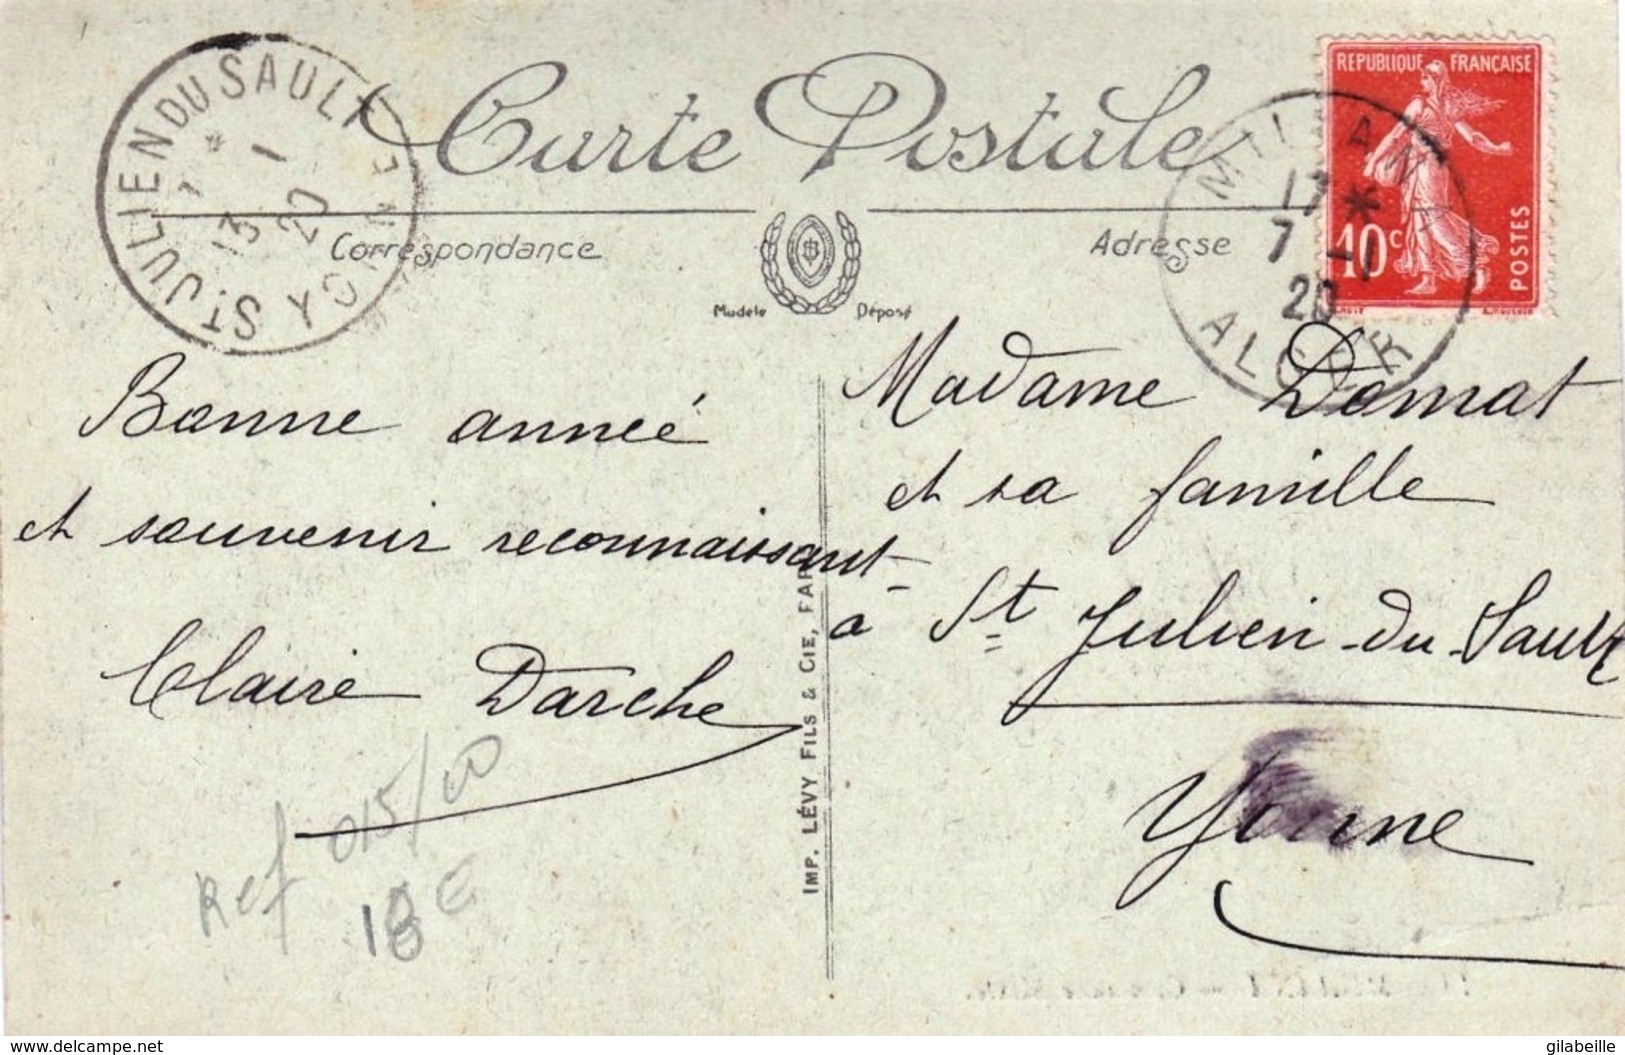 Carte Postale
ST JULIEN DU SAULT
13 1
20
YONNE
REPUBLIQUE FRANÇAISE
10c
POSTES
MILIANA
7 -1
20
ALGER
Correspondance
Adresse
Modèle Déposé
Bonne année
et souvenir reconnaissant
Claire Darche
Madame Domat
et sa famille
à St Julien-du-Sault
Yonne
IMP. LÉVY FILS & CIE, PAR
Ref 015/00
18 €
www.delcampe.net
gilabeille